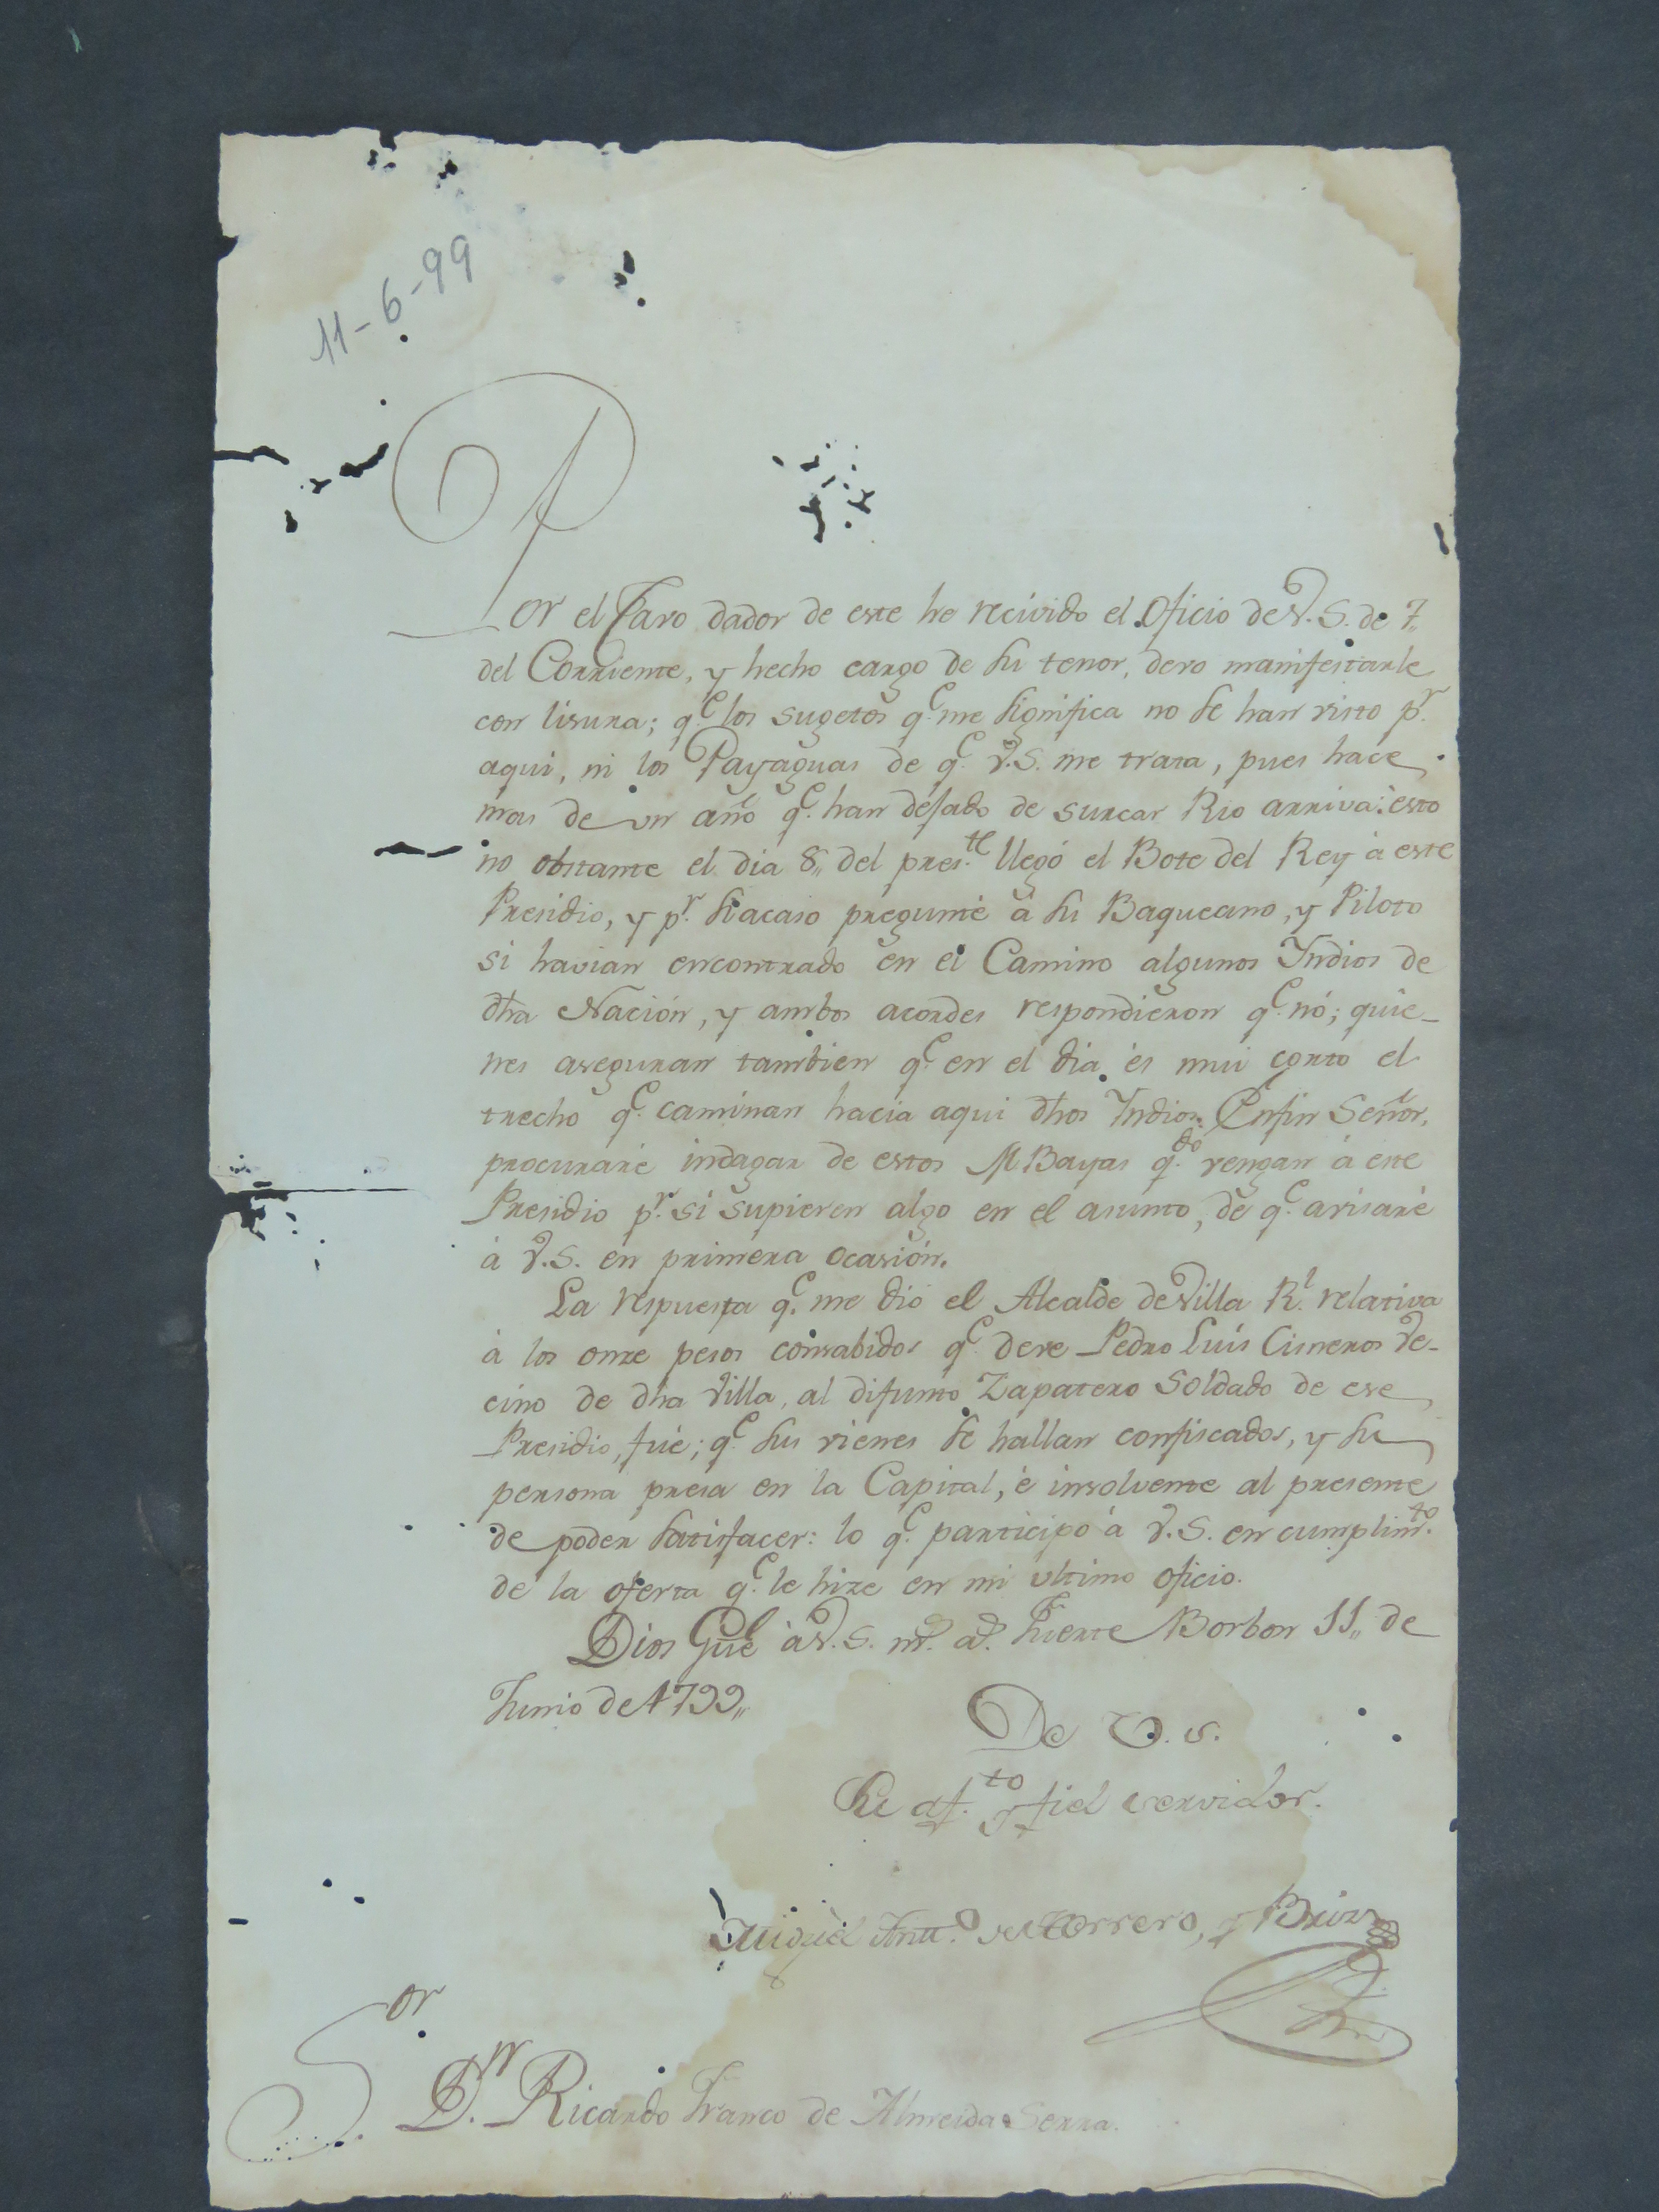 11-6-99
Por el Faro dador de este he recivido el Oficio de V.S. de 7,,
del Corriente, y hecho cargo de su tenor, devo manifestarle
con lisura; q.e los sugetos q.e me significa no se han visto p.r
aqui, ni los Payaguas de q.e V.S. me trata, pues hace
mas de un año q.e han dejado de surcar Rio arriva: esto
no obstante el dia 8,, del pres.te llegó el Bote del Rey à este
Presidio, y p.r siacaso pregunté à su Baqueano, y Piloto
si havian encontrado en el Camino algunos Yndios de
dha Nación, y ambos acordes respondieron q.e nó; quie-
nes aseguran tambien q.e en el dia és mui corto el
trecho q.e caminan hacia aqui dhos Yndios. Enfin Señor,
procuraré indagar de estos MBayas q.do vengan à este
Presidio p.r si supieren algo en el asunto, de q.e avisaré
à V.S. en primera ocasión.
La respuesta q.e me dió el Alcalde de Villa R.l relativa
à los onze pesos consabidos q.e deve Pedro Luis Cisneros Ve-
cino de dha Villa, al difunto Zapatero Soldado de ese
Presidio, fué; q.e sus vienes se hallan confiscados, y su
persona presa en la Capital, è insolvente al presente
de poder satisfacer: lo q.e participo à V.S. en cumplim.to
de la oferta q.e le hize en mi ultimo oficio.
Dios Gue à V.S. m.s a.s Fuerte Borbon 11,, de
Junio de 1799,,
De V.S.
Su af.to y fiel servidor.
Miguel Ant.o de Herrero, y
S.or
D.n Ricardo Franco de Almeida Serra.